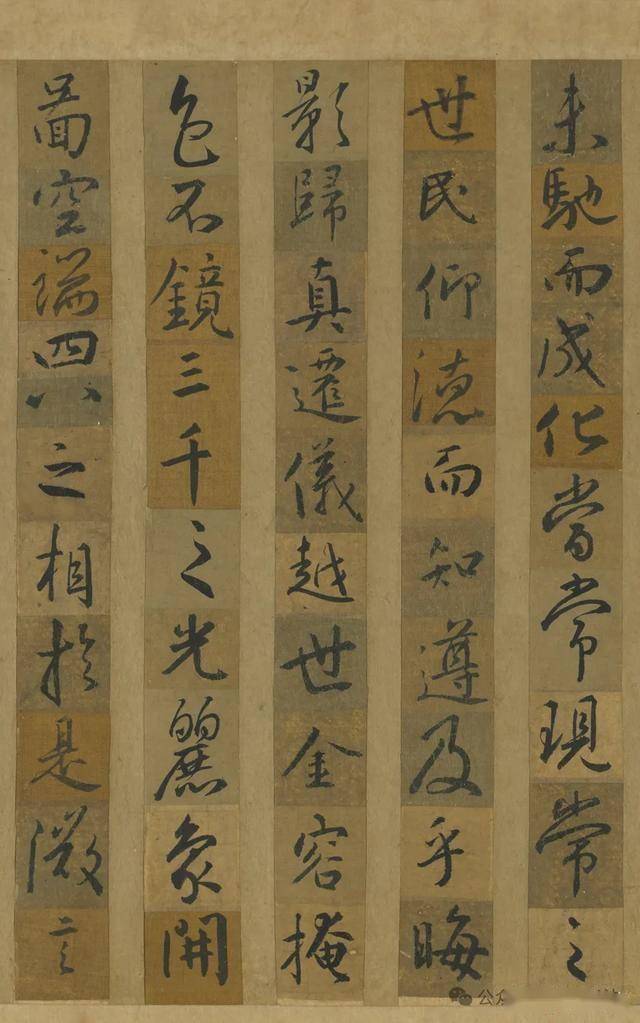 未馳而成化當常現常之
世民仰德而知遵及乎晦
影歸真遷儀越世金容掩
色不鏡三千之光麗象開
圖空端四八之相於是微言
公